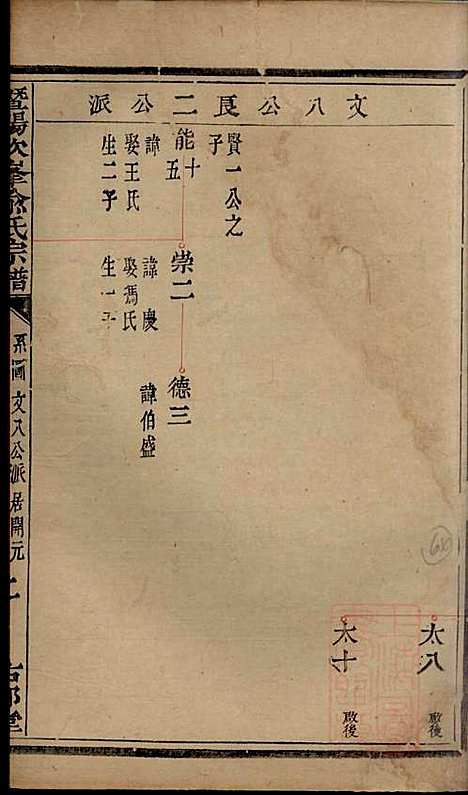 文八公良二公派
太八 啟後
太十 啟後
賢一公之
子
能十
五
諱
娶王氏
生二子
崇二
諱慶
娶馮氏
生一子
德三
諱伯盛
暨陽次峯俞氏宗譜
系圖 文八公派居開元 二